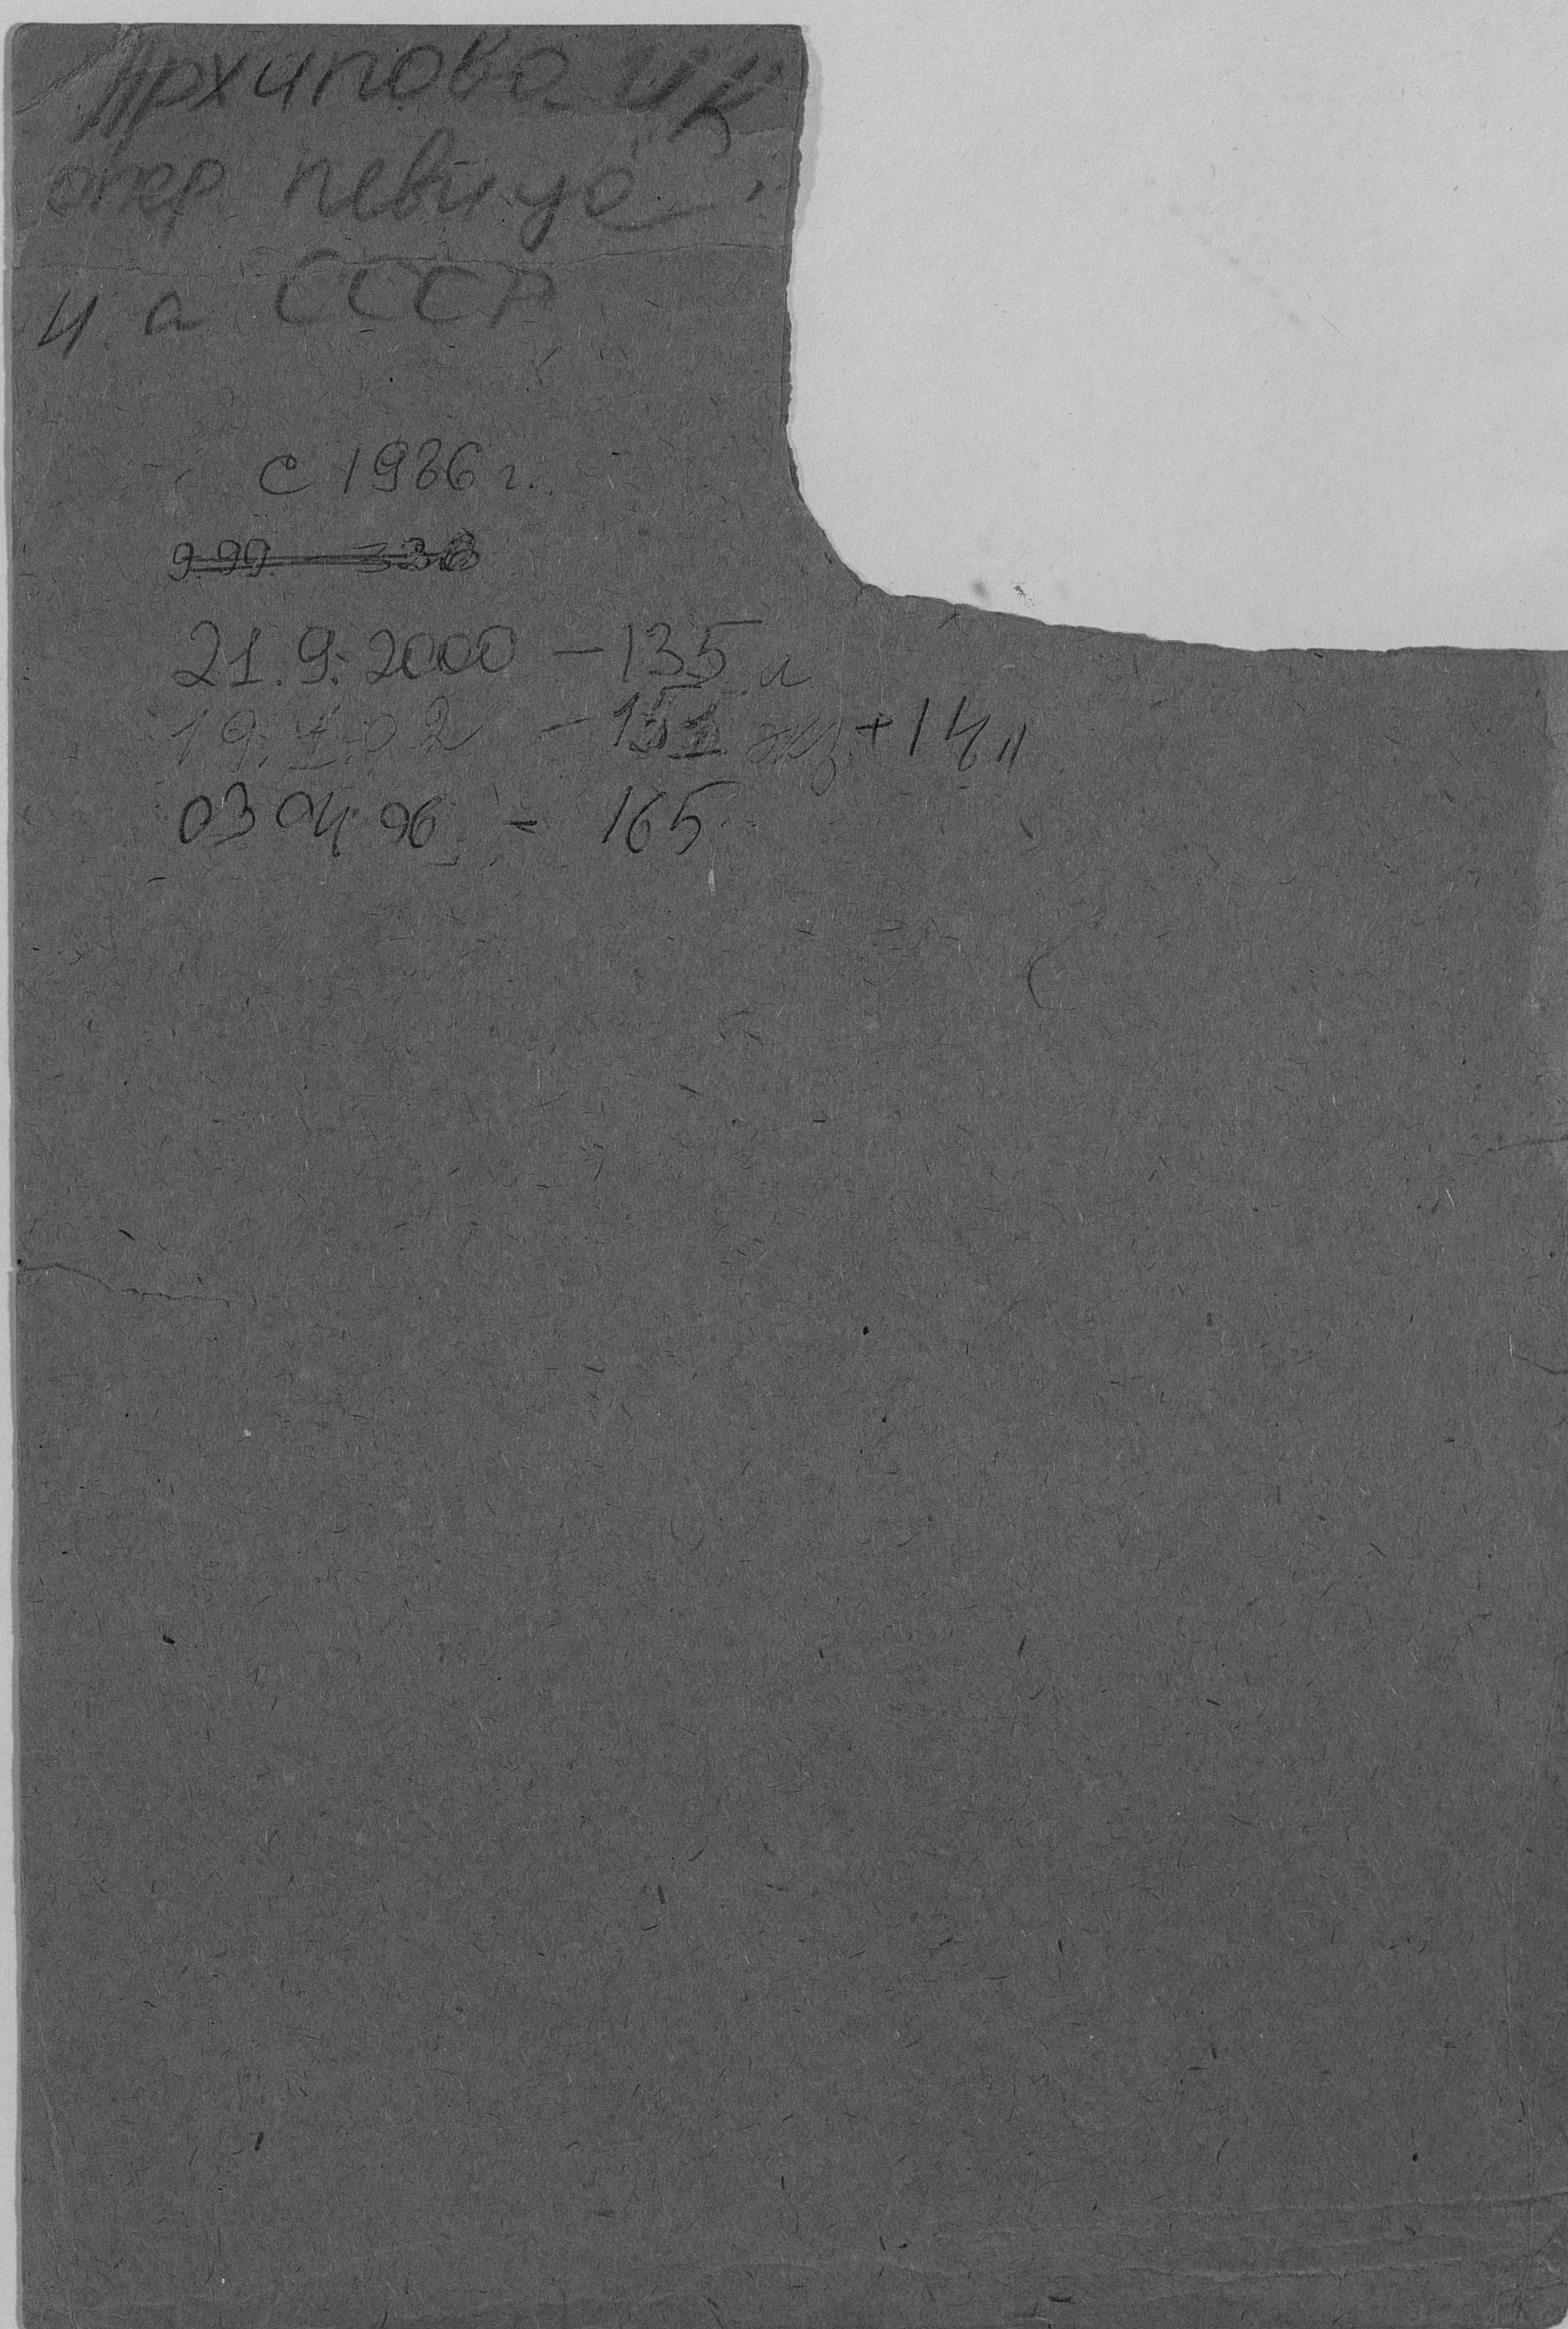 Архипова ИК
опер. певица
н а СССР
с 1986 г.
9.99. 338
21.9.2000 – 135 л
19.1.02 – 151 экз + 14 л
03 04 06 – 165